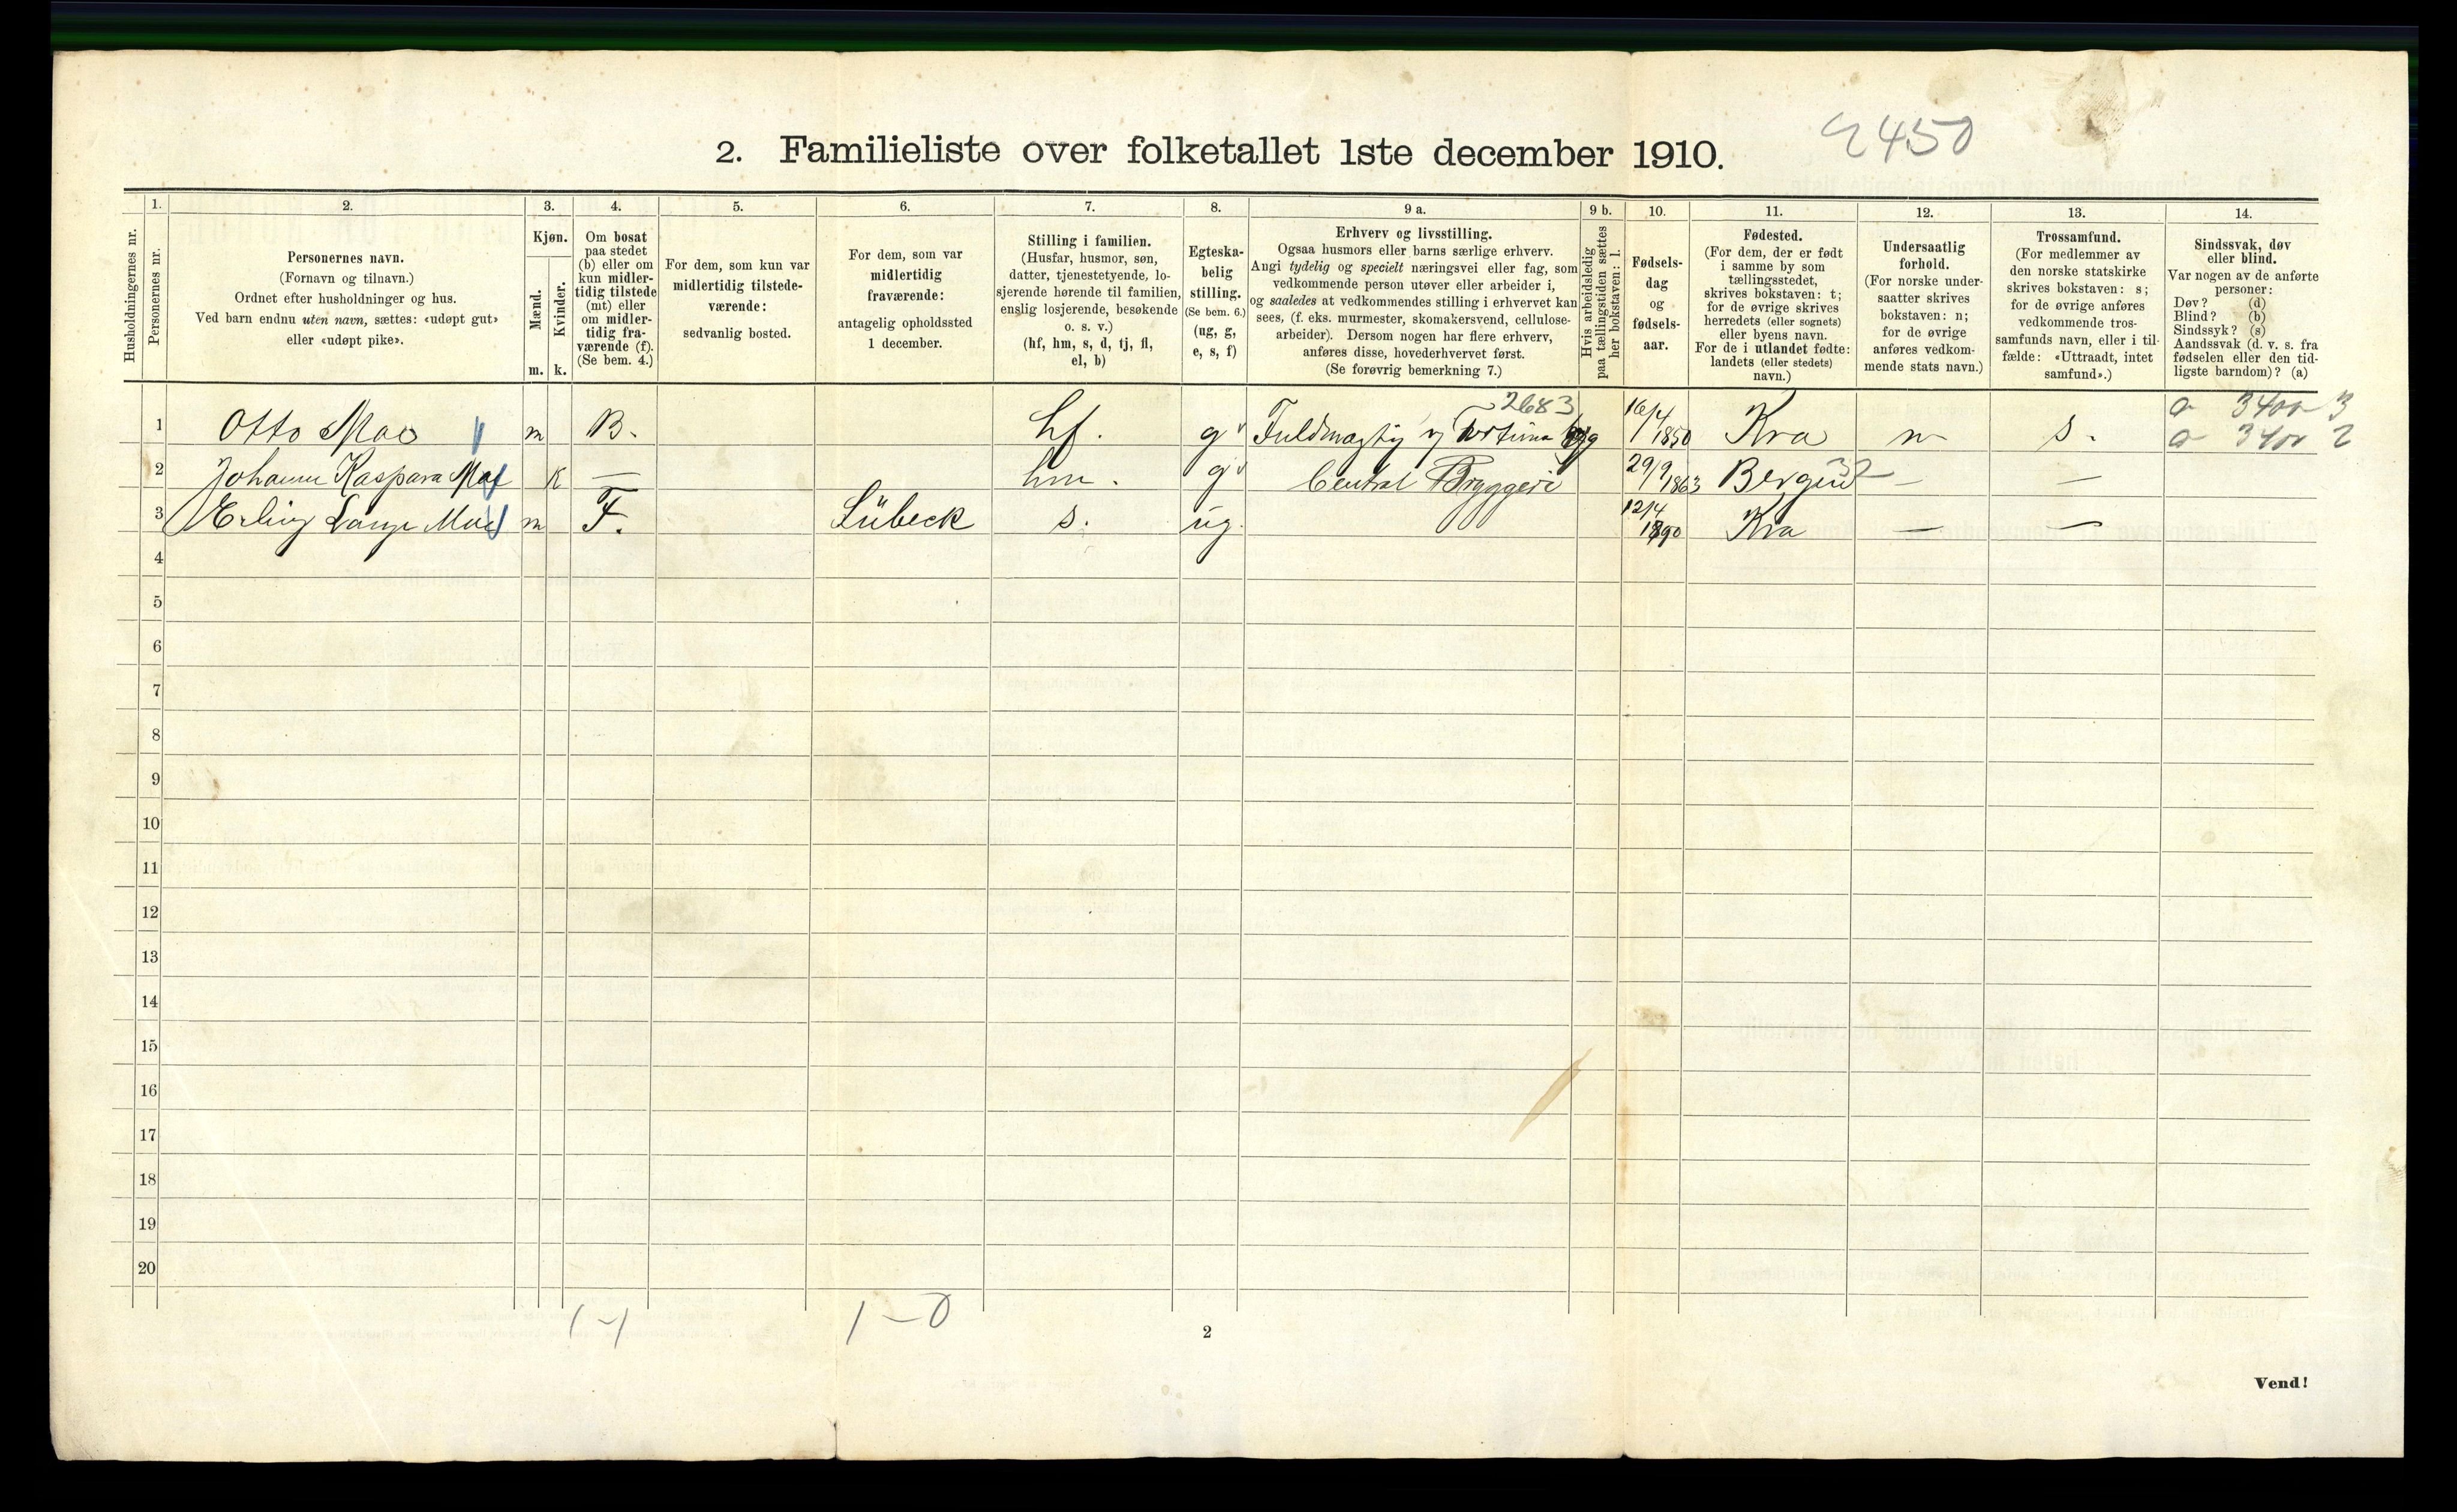 2. Familieliste over folketallet 1ste december 1910.
2450
Husholdningernes nr.
Personernes nr.
1.
2.
Personernes navn.
(Fornavn og tilnavn.)
Ordnet efter husholdninger og hus.
Ved barn endnu uten navn, sættes: «udøpt gut»
eller «udøpt pike».
3.
Kjøn.
Mænd.
Kvinder.
m. k.
4.
Om bosat
paa stedet
(b) eller om
kun midler-
tidig tilstede
(mt) eller
om midler-
tidig fra-
værende (f).
(Se bem. 4.)
5.
For dem, som kun var
midlertidig tilstede-
værende:
sedvanlig bosted.
6.
For dem, som var
midlertidig
fraværende:
antagelig opholdssted
1 december.
7.
Stilling i familien.
(Husfar, husmor, søn,
datter, tjenestetyende, lo-
sjerende hørende til familien,
enslig losjerende, besøkende
o. s. v.)
(hf, hm, s, d, tj, fl,
el, b)
8.
Egteska-
belig
stilling.
(Se bem. 6.)
(ug, g,
e, s, f)
9 a.
Erhverv og livsstilling.
Ogsaa husmors eller barns særlige erhverv.
Angi tydelig og specielt næringsvei eller fag, som
vedkommende person utøver eller arbeider i,
og saaledes at vedkommendes stilling i erhvervet kan
sees, (f. eks. murmester, skomakersvend, cellulose-
arbeider). Dersom nogen har flere erhverv,
anføres disse, hovederhvervet først.
(Se forøvrig bemerkning 7.)
9 b.
Hvis arbeidsledig
paa tællingstiden sættes
her bokstaven: l.
10.
Fødsels-
dag
og
fødsels-
aar.
11.
Fødested.
(For dem, der er født
i samme by som
tællingsstedet,
skrives bokstaven: t;
for de øvrige skrives
herredets (eller sognets)
eller byens navn.
For de i utlandet fødte:
landets (eller stedets)
navn.)
12.
Undersaatlig
forhold.
(For norske under-
saatter skrives
bokstaven: n;
for de øvrige
anføres vedkom-
mende stats navn.)
13.
Trossamfund.
(For medlemmer av
den norske statskirke
skrives bokstaven: s;
for de øvrige anføres
vedkommende tros-
samfunds navn, eller i til-
fælde: «Uttraadt, intet
samfund».)
14.
Sindssvak, døv
eller blind.
Var nogen av de anførte
personer:
Døv? (d)
Blind? (b)
Sindssyk? (s)
Aandssvak (d. v. s. fra
fødselen eller den tid-
ligste barndom)? (a)
2683
1 Otto Moe m B. hf. g Fuldmægtig v Fortuna 16/4 1850 Kra n s.
2 Johanne Kaspara Moe k — hm. g Central Bryggeri 29/9 1863 Bergen — —
3 Erling Lange Moe m F. Lübeck s. ug. 12/4 1890 Kra — —
4
5
6
7
8
9
10
11
12
13
14
15
16
17
18
19
20
1-1 1-0
2
Vend!